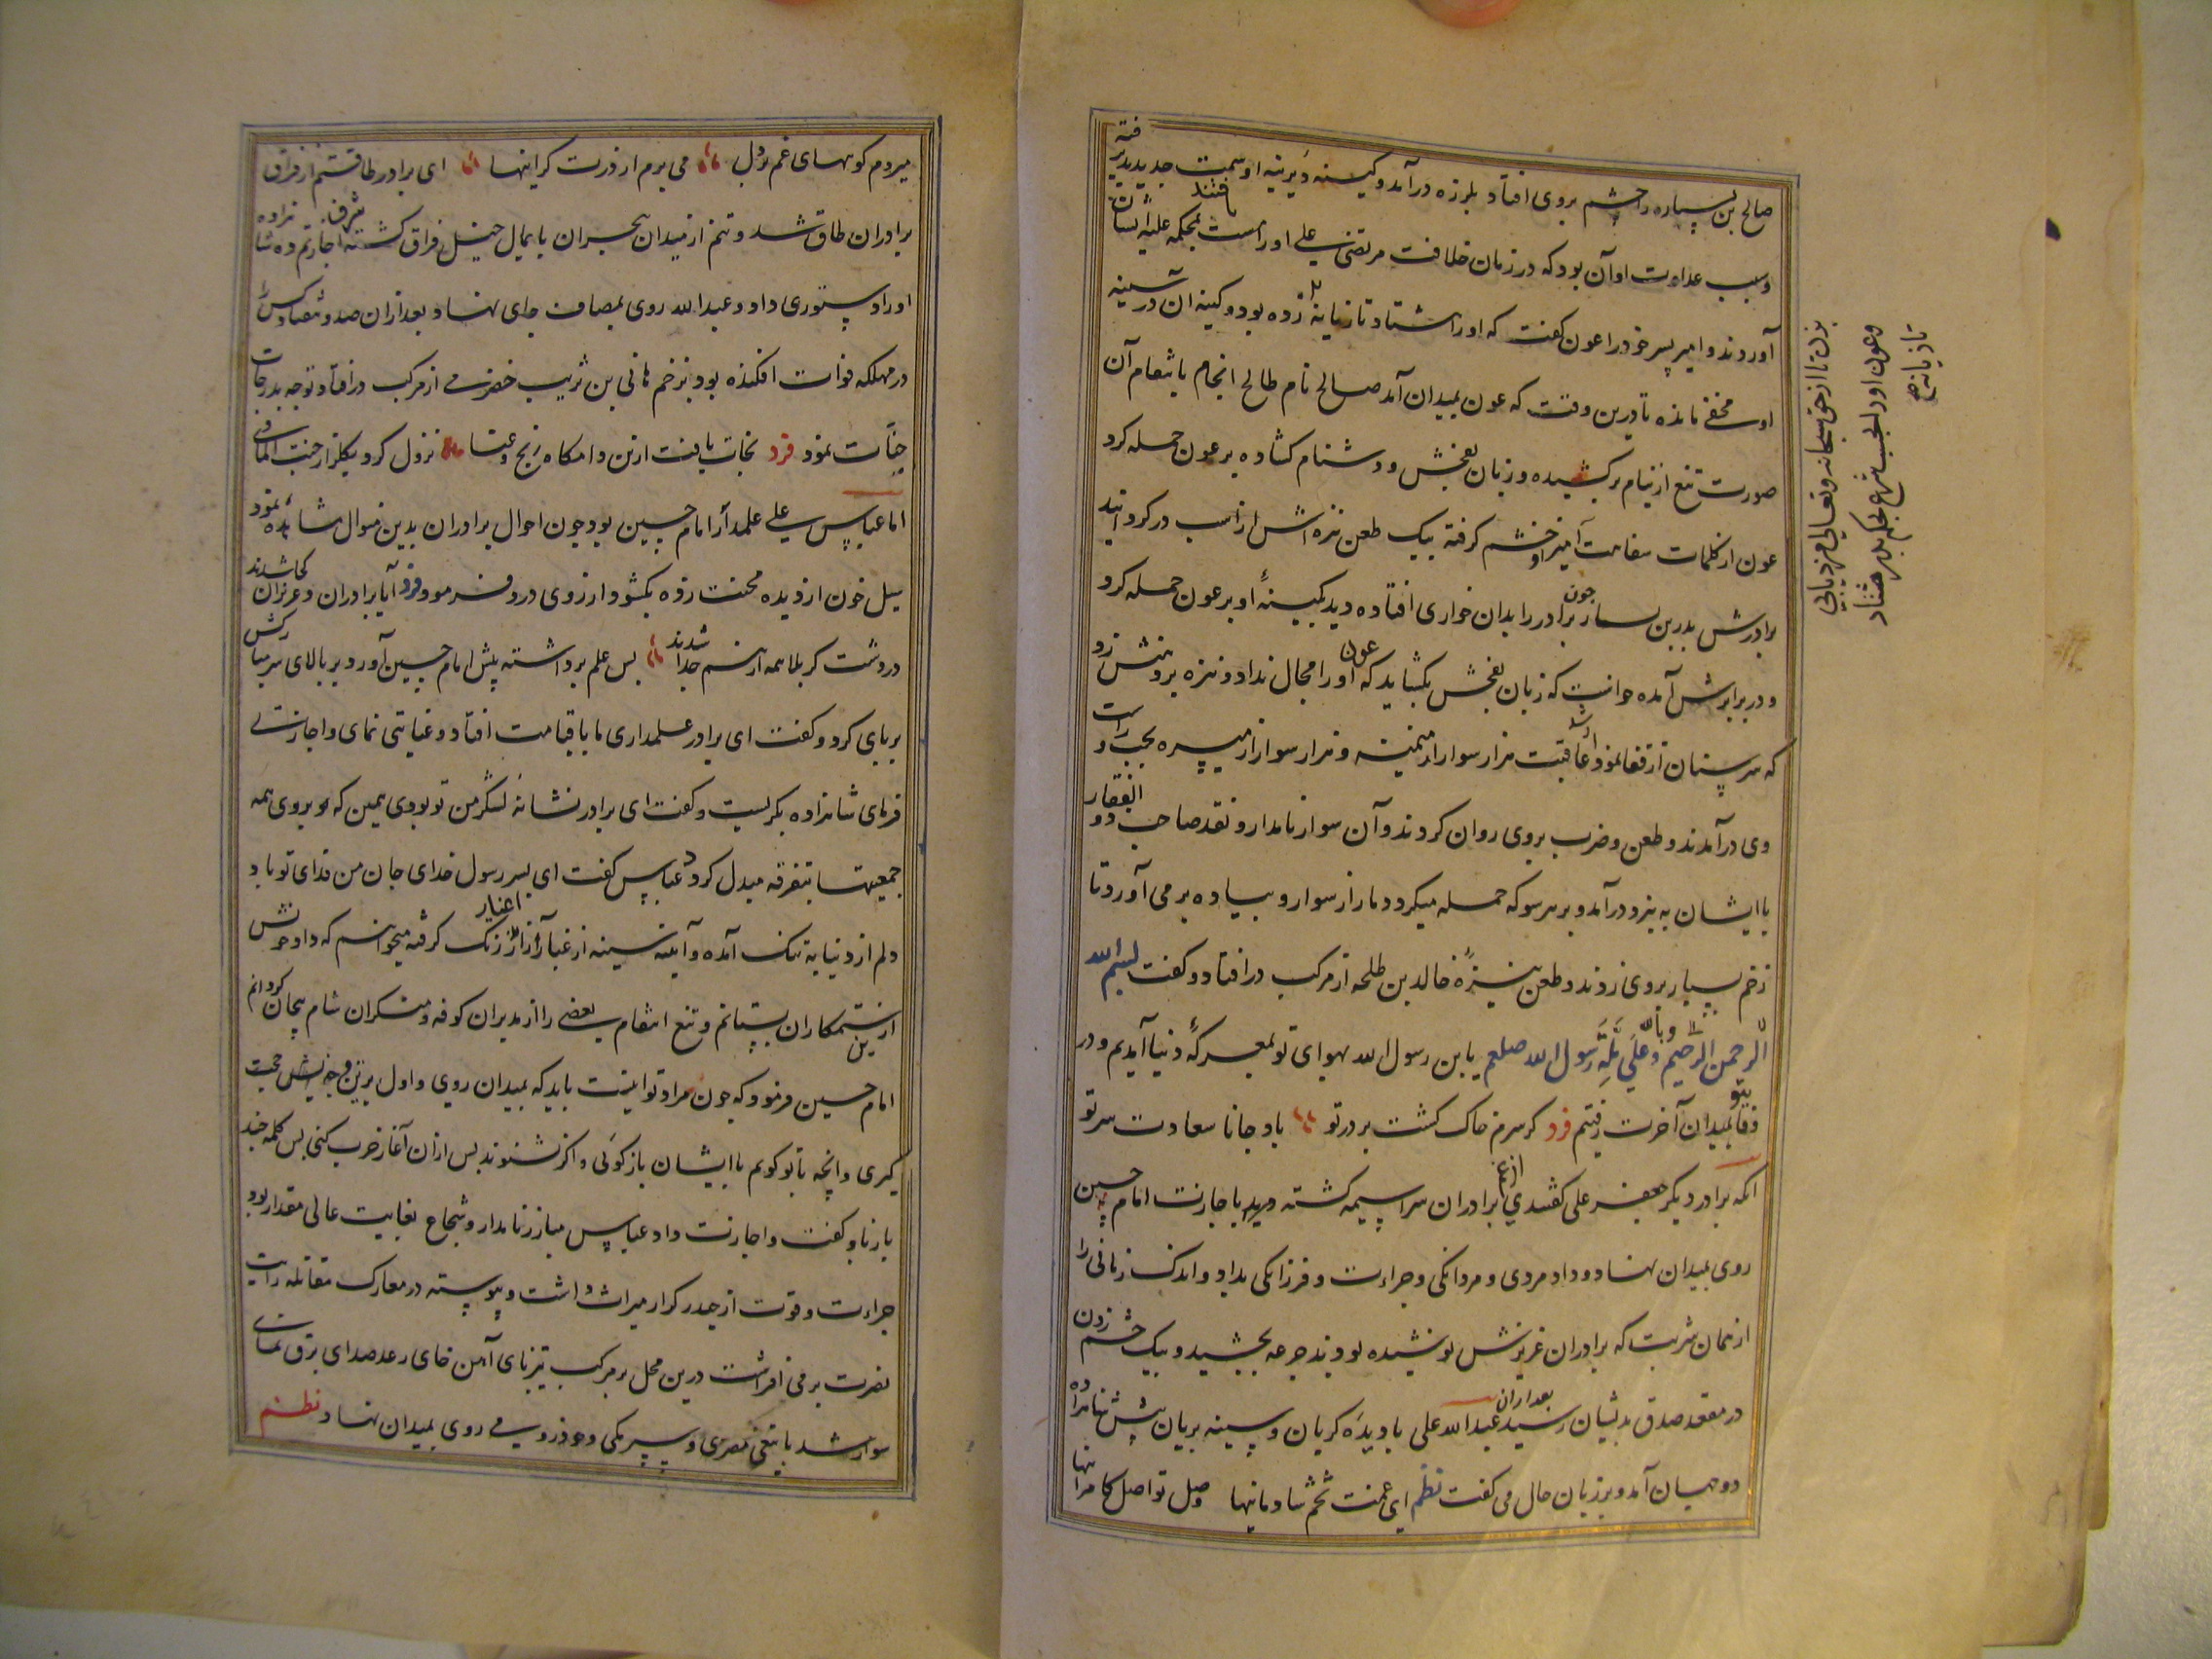 صالح بن یسار را چشم بروی افتاد بلرزه درآمد و کینه دیرینه او سمت جدید پذیرفته
و سبب عداوت او آن بود که در زمان خلافت مرتضی علی او را مست بمحکمه علیه ایشان
آوردند و امیر پسر خود را عون گفت که او را هشتاد تازیانه زده بود و کینه آن در سینه
او مخفی مانده تا درین وقت که عون بمیدان آمد صالح نام طالح انجام با نتقام آن
صورت تیغ از نیام برکشیده و زبان بفحش و دشنام کشاده بر عون حمله کرد
عون از کلمات سفاهت آمیز او خشم گرفته بیک طعن نیزه اش از اسب در کردانید
برادرش بدر بن یسار چون برادر را بدان خواری افتاده دید بکینهٔ او بر عون حمله کرد
و در برابرش آمده خواست که زبان بفحش بکشاید که عون او را مجال نداد و نیزه بر دهنش زد
که سر سنان از قفا نمود عاقبت هزار سوار از میمنه و هزار سوار از میسره بجب و راست
وی درآمدند و طعن و ضرب بروی روان کردند و آن سوار نامدار و نقد صاحب ذو الفقار
با ایشان به نبرد درآمد و بر هر سو که حمله میکرد دمار از سوار و پیاده بر می آورد تا
زخم بسیار بروی زدند و طعن نیزهٔ خالد بن طلحه از مرکب در افتاد و گفت بسم الله
الرحمن الرحیم و بالله و علی ملة رسول الله صلعم یا بن رسول الله بهوای تو بمعرکهٔ دنیا آمدیم و در
وفا بتو بمیدان آخرت رفتیم فرد گر سرم خاک گشت بر در تو باد جانا سعادت سر تو
آنکه برادر دیگر جعفر علی که از غم برادران سراسیمه گشته دید با جازت امام حسین
روی بمیدان نهاد و داد مردی و مردانکی و جراءت و فرزانکی بداد و اندک زمانی را
از همان شربت که برادران عزیزش نوشیده بودند جرعه بچشید و بیک چشم زدن
در مقعد صدق بدیشان رسید بعد ازان عبدالله علی با دیدهٔ گریان و سینه بریان پیش شاهزاده
دو جهان آمد و بزبان حال می گفت نظم ای غمت تخم شادمانیها وصل تو اصل کامرانیها
بزن تا از حق سبحانه و تعالی مزد یابی
و عون او را بجب شرع بحکم پدر هشتاد
تازیانه
میردم کوههای غم بر دل می برم از درت گرانیها ای برادر طاقتم از فراق
برادران طاق شد و تنم از میدان هجران پایمال خیل فراق گشته اجازتم ده شاهزاده
او را دستوری داد و عبدالله روی بمصاف جای نهاد و بعد ازان صد و هفتاد کس را
در مهلکه فوات افکنده بود بزخم هانی بن ثویب خضرمی از مرکب در افتاد و توجه بدرجات
جنات نمود فرد نجات یافت ازین دامگاه رنج و عنا نزول کرد بگلزار جنت الماوی
اما عباس علی علمدار امام حسین بود چون احوال برادران بدین منوال مشاهده نمود
سیل خون از دیده محنت زده بکشود از روی درد فرمود فرد آیا برادران و عزیزان کجا شدند
در دشت کربلا همه از هم جدا شدند پس علم برداشته پیش امام حسین آورد بر بالای سر مبارکش
بر پای کرد و گفت ای برادر علمداری ما با قیامت افتاد و عنایتی نمای و اجازتی
فرمای شاهزاده بگریست و گفت ای برادر نشانه لشکر من تو بودی همین که تو بروی همه
جمعیتها بتفرقه مبدل گردد عباس گفت ای پسر رسول خدای جان من فدای تو باد
دلم از دنیا به تنک آمده و آینه سینه از غبار آزار اغیار زنک گرفته میخواهم که داد خویش
ازین ستمکاران بستانم و تیغ انتقام بعضی را از مدبران کوفه و متکبران شام بیجان کردانم
امام حسین فرمود که چون مراد تو اینست باید که بمیدان روی و اول برین فرقه حجت
گیری و آنچه بتو گویم با ایشان بازگوئی و اگر نشنوند پس ازان آغاز حرب کنی پس کلمه چند
با زناو گفت و اجازت داد عباس مبارز نامدار و شجاع بغایت عالی مقدار بود
جراءت و قوت از حیدر کرار میراث داشت و پیوسته در معارک مقاتله رایت
نصرت بر می افراشت درین محل بر مرکب تیزپای آهن خای رعد صدای برق نمای
سوار شد با تیغی مصری و سپر مکی و خود رومی روی بمیدان نهاد نظم